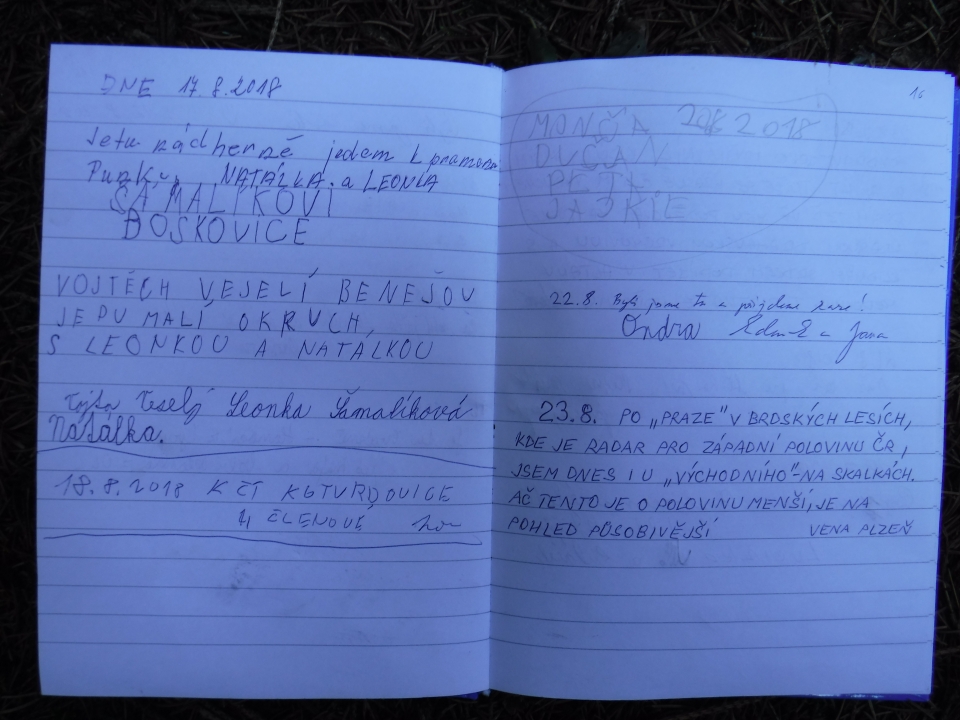 DNE 17.8.2018
Jetu nádherně jedem k pramenu
Punkvy NATÁLKA a LEONKA
ŠAMALÍKOVI
BOSKOVICE
VOJTĚCH VESELÍ BENEŠOV
JEDU MALÍ OKRUH,
S LEONKOU A NATÁLKOU
Vojta Veselý Leonka Šamalíková
Natálka.
18.8.2018 KČT KOTVRDOVICE
4 ČLENOVÉ
16
MONČA 20.8.2018
DUČAN
PÉŤA
JACKIE
22.8. Byli jsme tu a přijdeme zase!
Ondra a Jana
23.8. PO „PRAZE" V BRDSKÝCH LESÍCH,
KDE JE RADAR PRO ZÁPADNÍ POLOVINU ČR,
JSEM DNES I U „VÝCHODNÍHO"-NA SKALKÁCH.
AČ TENTO JE O POLOVINU MENŠÍ, JE NA
POHLED PŮSOBIVĚJŠÍ VENA PLZEŇ